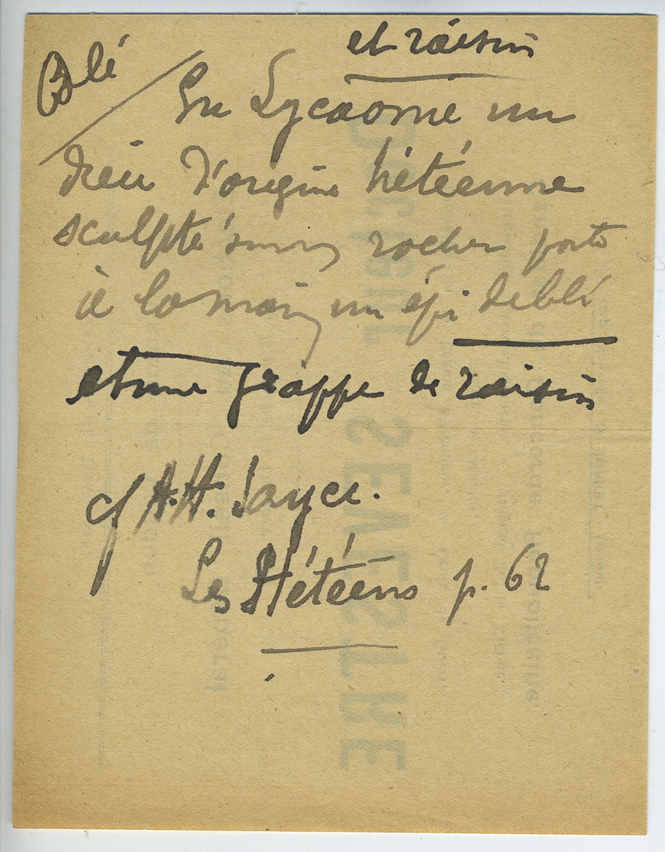 et raisin
Blé
En Lycaonie un
dieu d'origine hétéenne
sculpté sur un rocher porte
à la main un épi de blé
et une grappe de raisin
cf A.H. Sayce.
Les Hétéens p. 62